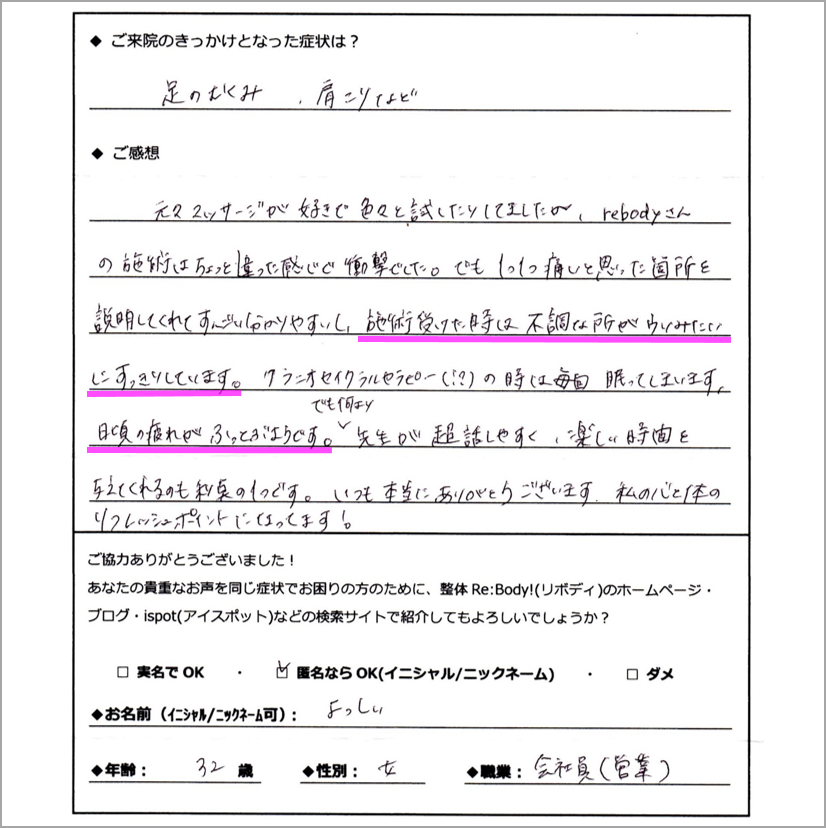 ◆ ご来院のきっかけとなった症状は？
足のむくみ 、肩こりなど
◆ ご感想
元々マッサージが好きで色々と試したりしてましたが、rebodyさん
の施術はちょっと違った感じで衝撃でした。でも1つ1つ痛いと思った箇所を
説明してくれてすんごい分かりやすいし、施術受けた時は不調な所がウソみたい
にすっきりしています。クラニオセイクラルセラピー(!?)の時は毎回眠ってしまいます。
でも何より
日頃の疲れがふっとぶようです。先生が超話しやすく、楽しい時間を
与えてくれるのも利点の1つです。いつも本当にありがとうございます。私の心と体の
リフレッシュポイントになってます！
ご協力ありがとうございました！
あなたの貴重なお声を同じ症状でお困りの方のために、整体 Re:Body!(リボディ)のホームページ・
ブログ・ispot(アイスポット)などの検索サイトで紹介してもよろしいでしょうか？
□ 実名で OK ・ ☑ 匿名なら OK(イニシャル/ニックネーム) ・ □ ダメ
◆お名前（ｲﾆｼｬﾙ/ﾆｯｸﾈｰﾑ可）： よっしぃ
◆年齢： 32 歳 ◆性別： 女 ◆職業： 会社員(営業)